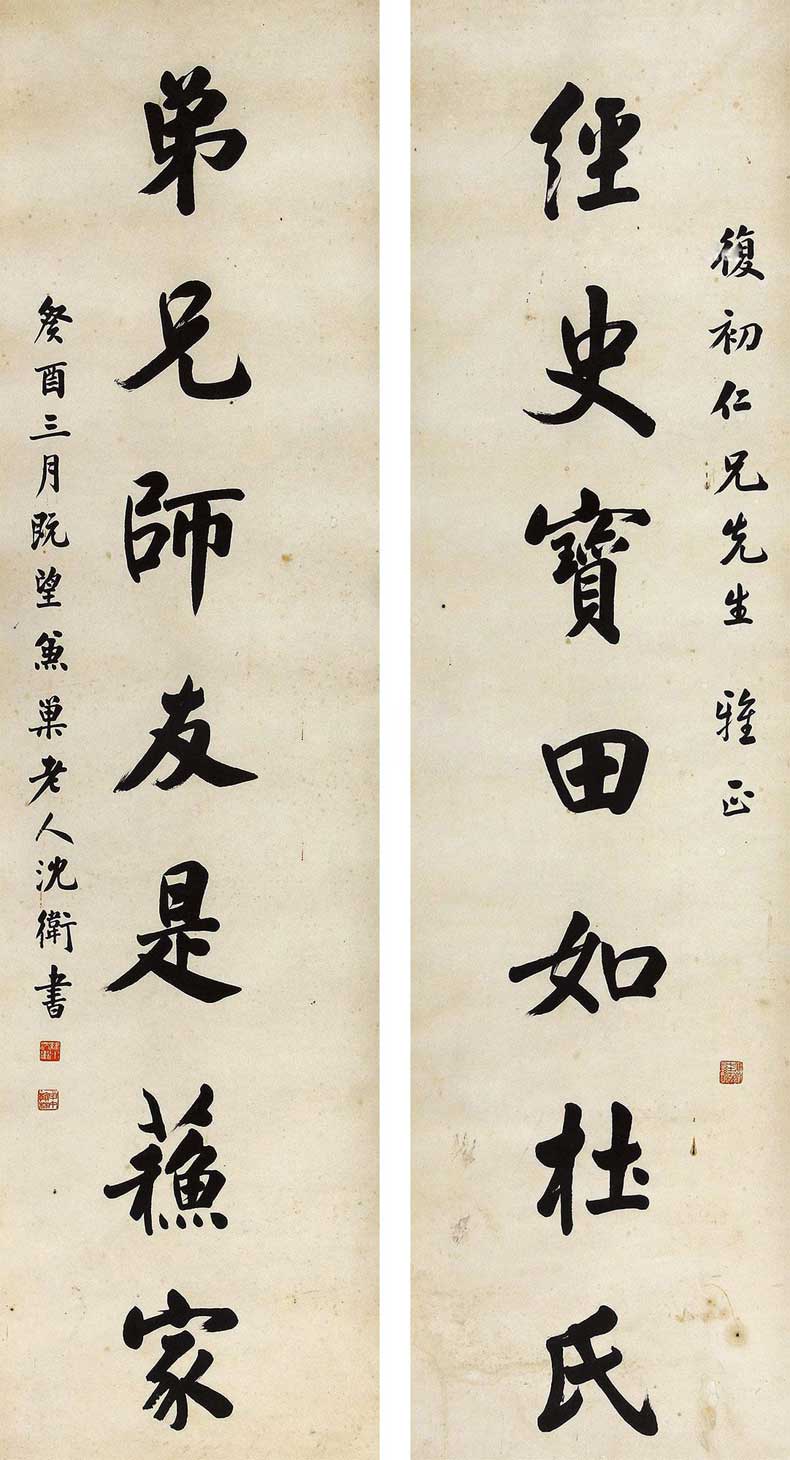 復初仁兄先生 雅正
經史寶田如杜氏
弟兄師友是蘇家
癸酉三月既望兼巢老人沈衛書